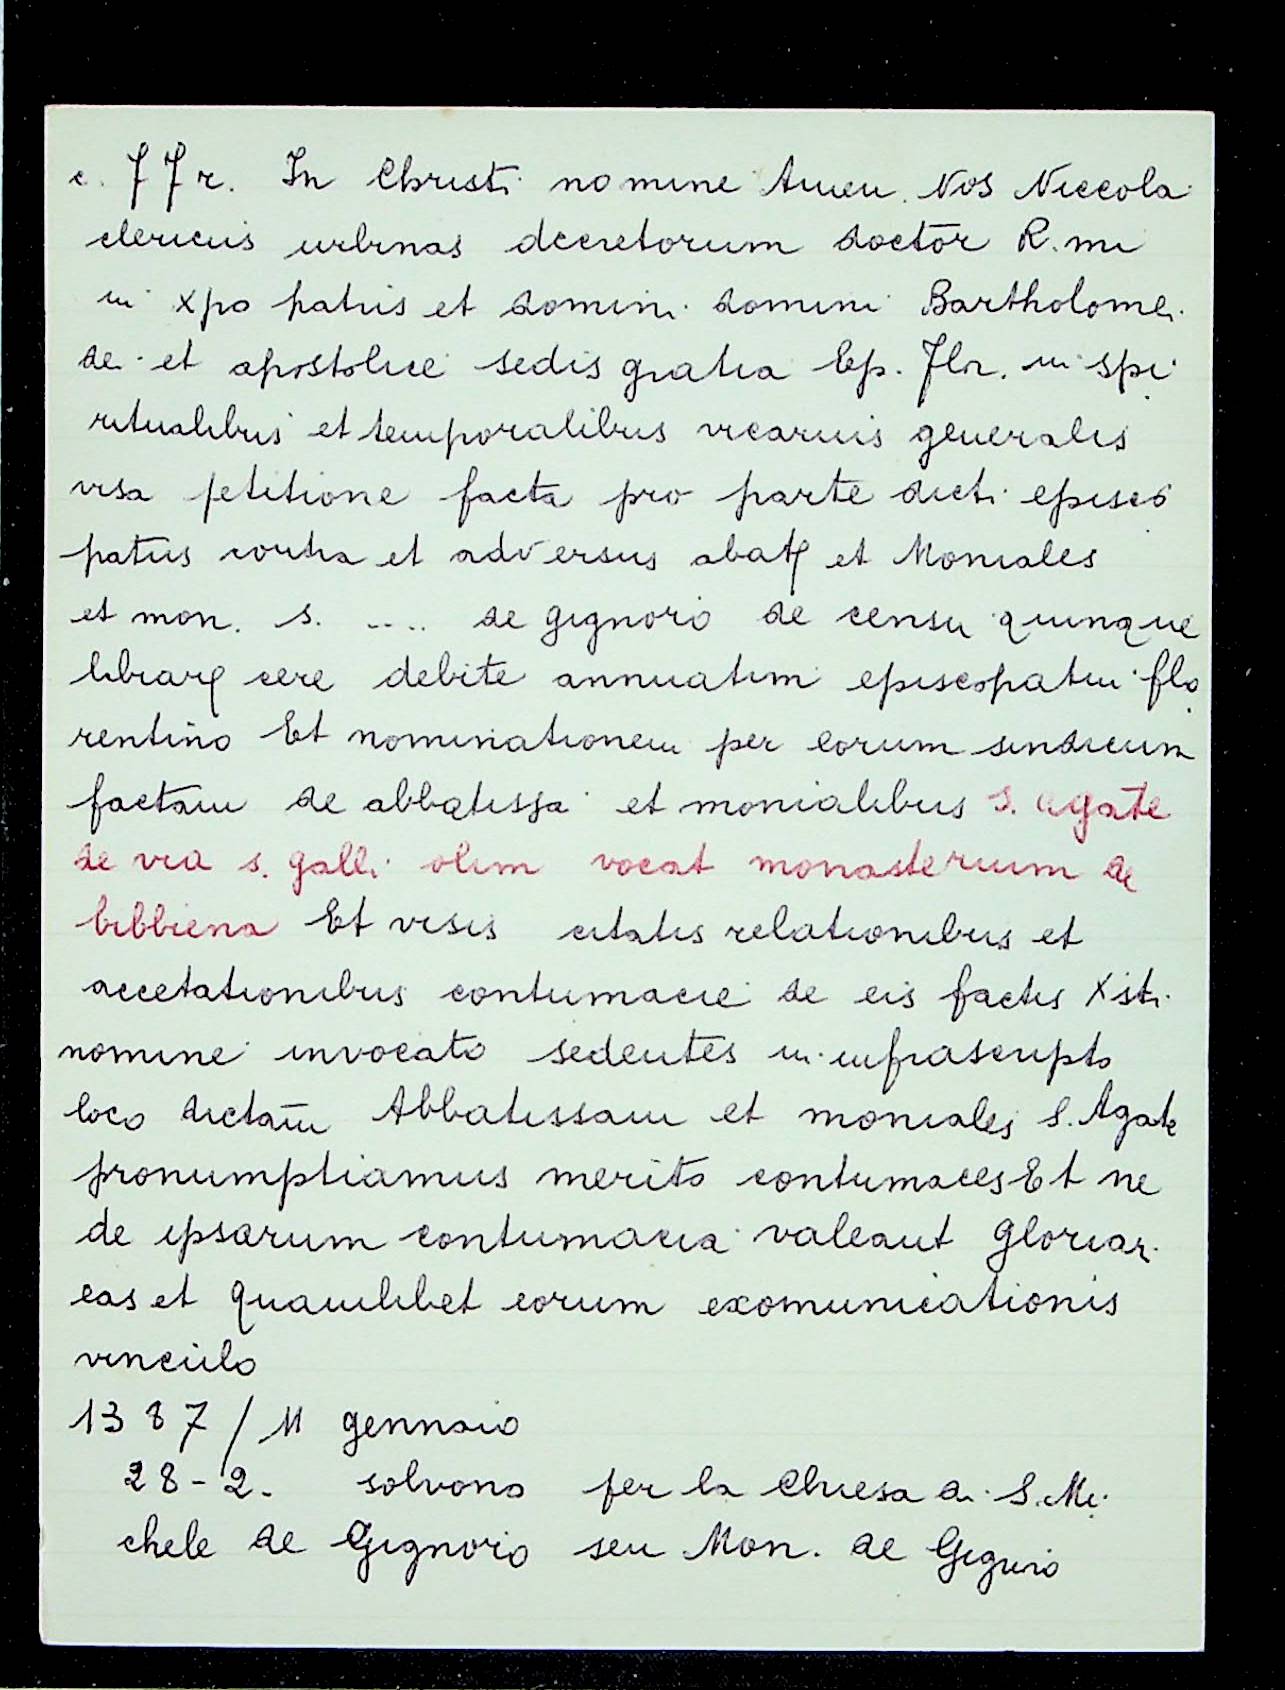 c. 77r. In Christi nomine Amen. Nos Niccola
clericus urbinas decretorum doctor R.mi
in xpo patris et domini domini Bartholomei
dei et apostolice sedis gratia Ep. Flor. in spi
ritualibus et temporalibus vicarius generalis
visa petitione facta pro parte dicti episco
patus contra et adversus abat et Moniales
et mon. S. .... de gignoro de censu quinque
librar cere debite annuatim episcopatui flo
rentino Et nominationem per eorum sindicum
factam de abbatissa et monialibus S. Agate
de via s. galli olim vocat monasterium de
bibbiena Et visis citatis relationibus et
accetationibus contumacie de eis factis Xsti
nomine invocato sedentes in infrascripto
loco dictam Abbatissam et moniales S. Agate
pronumptiamus merito contumaces Et ne
de ipsarum contumacia valeant gloriari
eas et quamlibet eorum exomunicationis
vinculo
1387 / 11 gennaio
28-2. solvono per la Chiesa di S. Mi
chele de Gignoro seu Mon. de Gignio